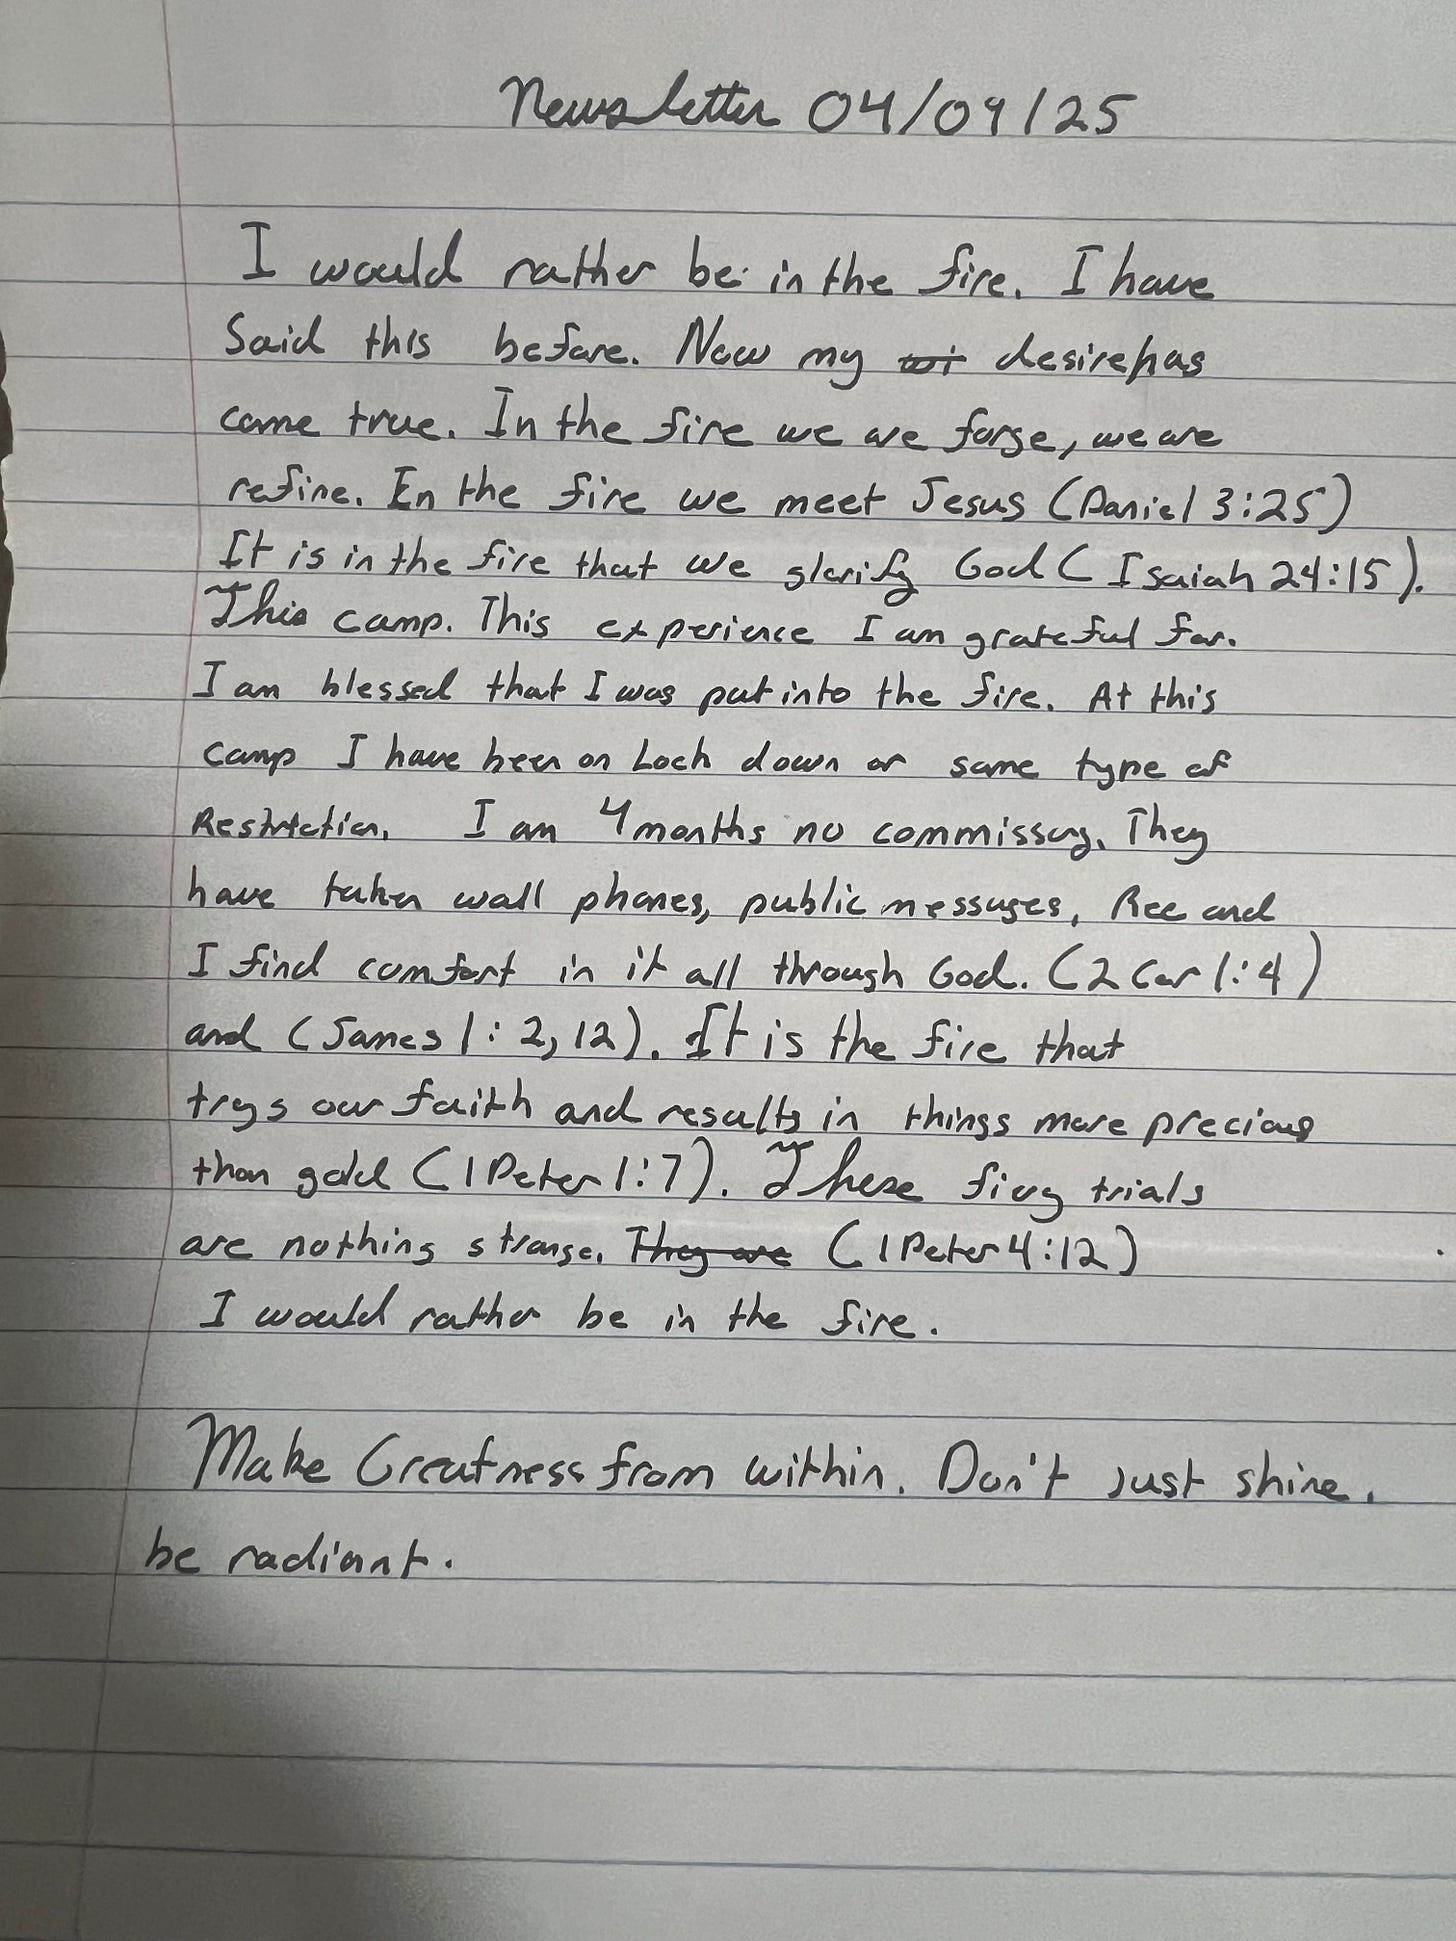 Newsletter 04/09/25
I would rather be in the fire. I have
Said this before. Now my desire has
come true. In the fire we are forge, we are
refine. In the fire we meet Jesus (Daniel 3:25)
It is in the fire that we glorify God (Isaiah 24:15).
This camp. This experience I am grateful for.
I am blessed that I was put into the fire. At this
camp I have been on Lock down or some type of
Restriction. I am 4 months no commissary. They
have taken wall phones, public messages, Rec and
I find comfort in it all through God. (2 Cor 1:4)
and (James 1:2,12). It is the fire that
trys our faith and results in things more precious
than gold (1 Peter 1:7). These firey trials
are nothing strange. They are (1 Peter 4:12)
I would rather be in the fire.
Make Greatness from within. Don't Just shine.
be radiant.